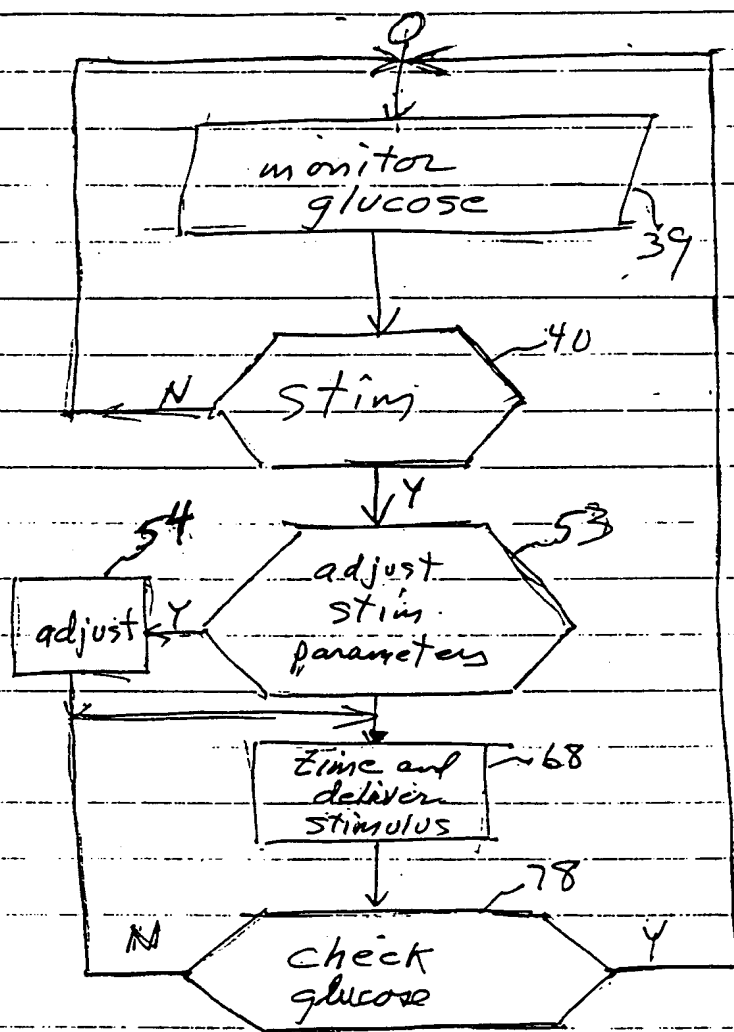 monitor
glucose
39
40
N
stim
Y
54
53
adjust
stim
parameters
Y
adjust
68
time and
deliver
stimulus
78
N
Y
check
glucose